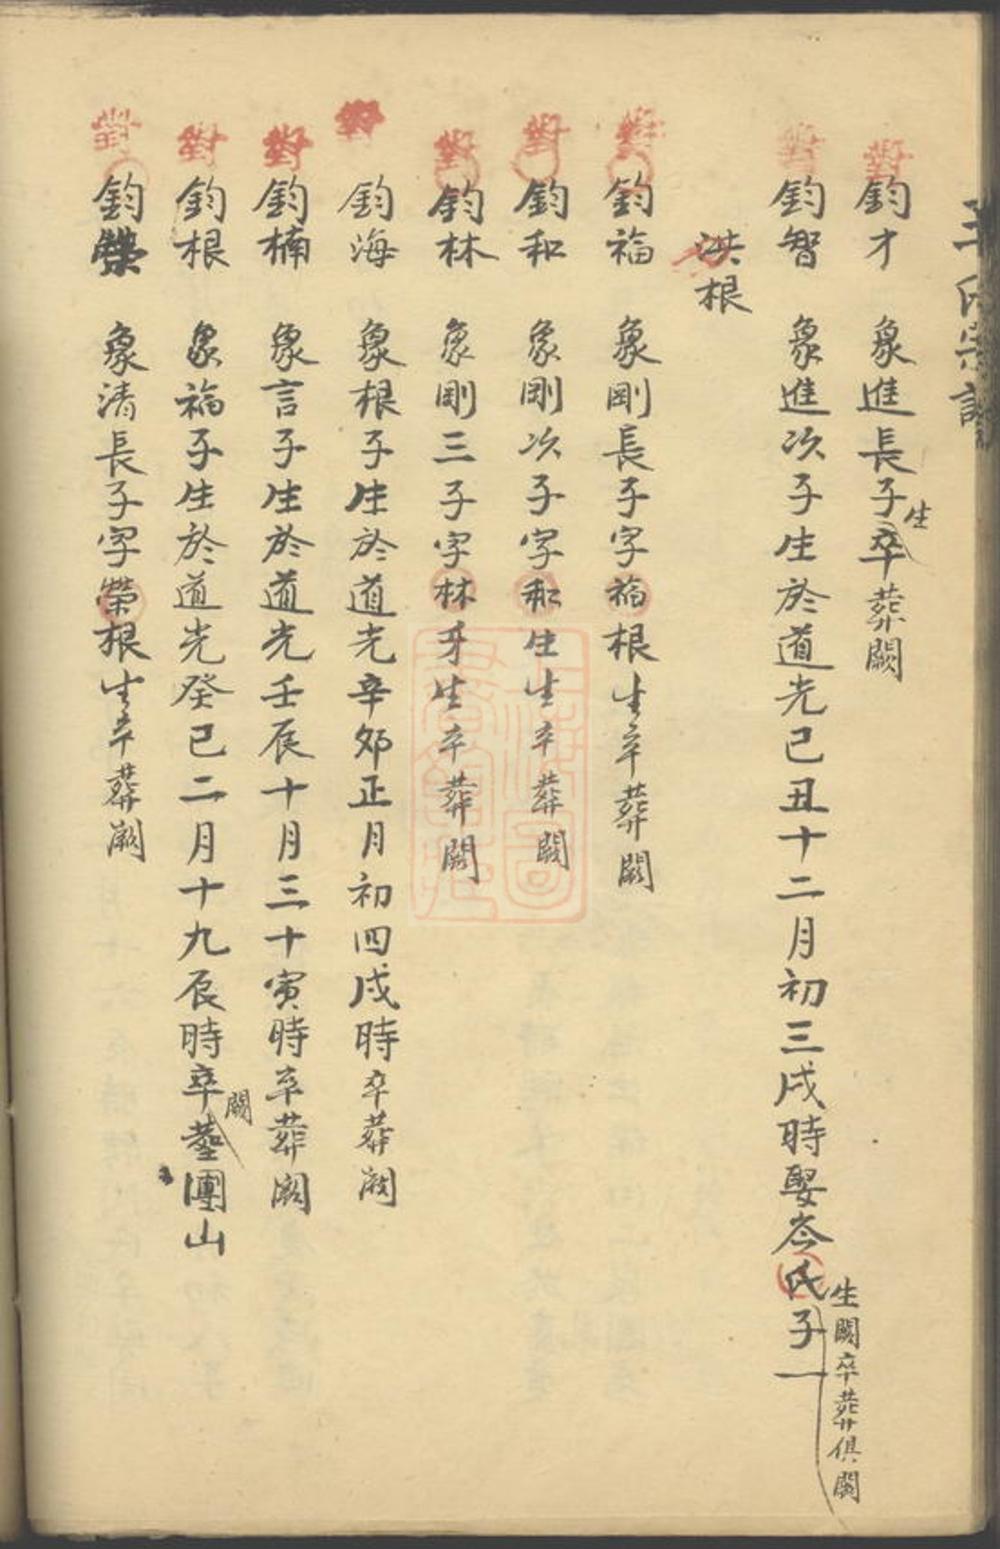 王氏宗譜
對 鈞才 象進長子生卒葬闕
對 鈞智 象進次子生於道光己丑十二月初三戌時娶岑氏生闕卒葬俱闕子一
洪根
對 鈞福 象剛長子字福根生卒葬闕
對 鈞和 象剛次子字和生生卒葬闕
對 鈞林 象剛三子字林牙生卒葬闕
對 鈞海 象根子生於道光辛卯正月初四戌時卒葬闕
對 鈞楠 象言子生於道光壬辰十月三十寅時卒葬闕
對 鈞根 象福子生於道光癸巳二月十九辰時卒闕葬團山
對 鈞榮 象清長子字榮根生卒葬闕